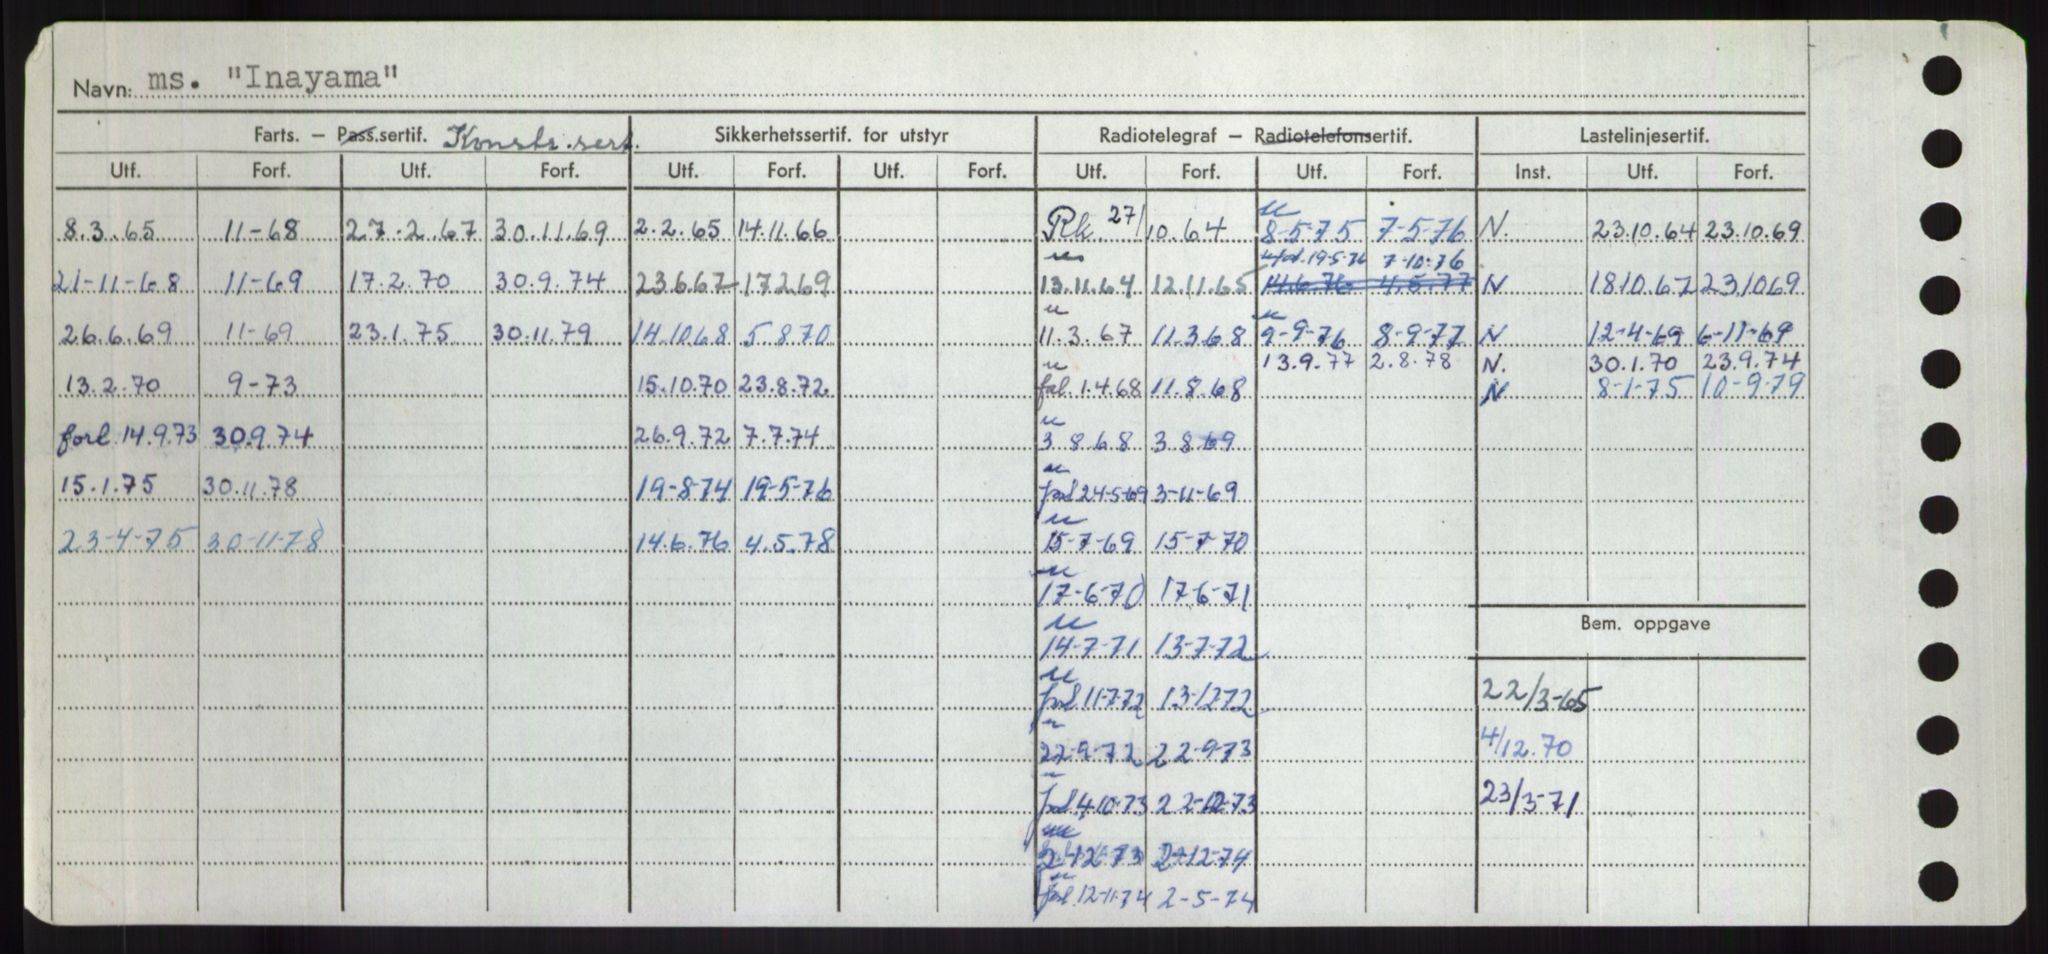 Navn: ms. "Inayama"
Farts. – Pass.sertif. Konstr.sert. Sikkerhetssertif. for utstyr Radiotelegraf – Radiotelefonsertif. Lastelinjesertif.
Utf. Forf. Utf. Forf. Utf. Forf. Utf. Forf. Utf. Forf. Utf. Forf. Inst. Utf. Forf.
8.3.65 11-68 27.2.67 30.11.69 2.2.65 14.11.66 Rk. 27/10.64 8-5-75 7-5-76 N. 23.10.64 23.10.69
19-5-76 7-10-76
21-11-68 11-69 17.2.70 30.9.74 23.6.67 17.2.69 13.11.64 12.11.65 14.6.76 4.5.77 N 18.10.67 23.10.69
26.6.69 11-69 23.1.75 30.11.79 14.10.68 5.8.70 11.3.67 11.3.68 9-9-76 8-9-77 N 12-4-69 6-11-69
13.9.77 2.8.78 N. 30.1.70 23.9.74
13.2.70 9-73 15.10.70 23.8.72 1.4.68 11.8.68 N 8-1-75 10-9-79
forl. 14.9.73 30.9.74 26.9.72 7.7.74 3 8 68 3 8 69
15.1.75 30.11.78 19-8-74 19-5-76 24-5-69 3-11-69
23-4-75 30-11-78 14.6.76 4.5.78 15-7-69 15-7-70
17-6-70 17-6-71
Bem. oppgave
14-7-71 13-7-72
11-7-72 13-12-72 22/3-65
22-9-72 22-9-73 4/12.70
4-10-73 22-12-73 23/3-71
2-12-74
12-11-74 2-5-74